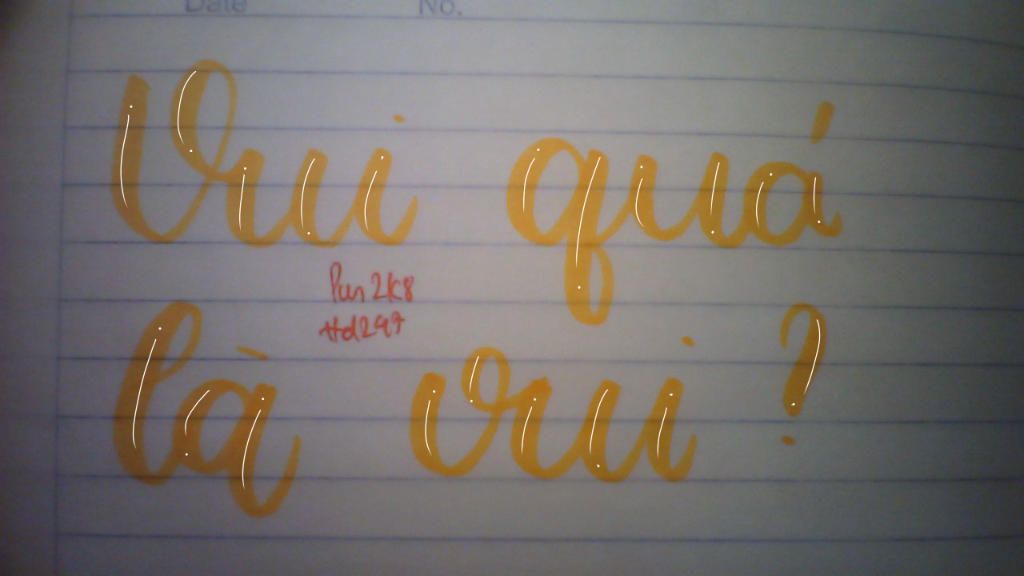 Date No.
Vui quá
Pun 2k8
là vui ?